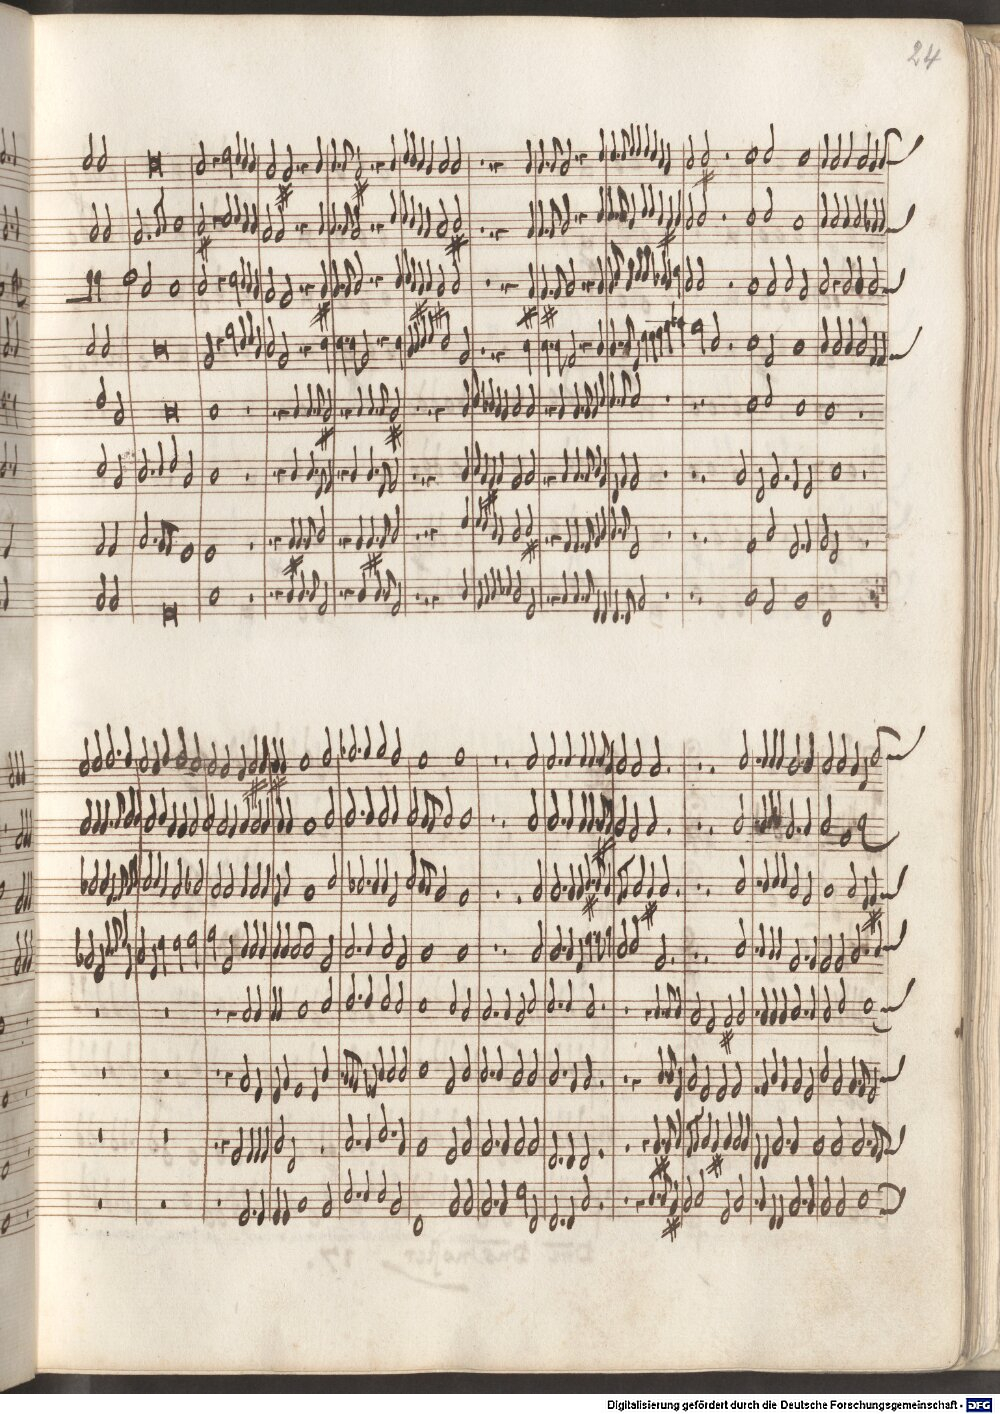 24
Digitalisierung gefördert durch die Deutsche Forschungsgemeinschaft - DFG